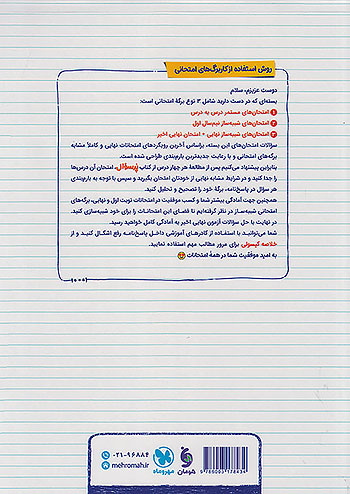 روش استفاده از کاربرگ‌های امتحانی
دوست عزیزم، سلام
بسته‌ای که در دست دارید شامل ۳ نوع برگهٔ امتحانی است:
۱ امتحان‌های مستمر درس به درس
۲ امتحان‌های شبیه‌ساز نیم‌سال اول
۳ امتحان‌های شبیه‌ساز نهایی + امتحان نهایی اخیر
سؤالات امتحان‌های این بسته، براساس آخرین رویکردهای امتحانات نهایی و کاملاً مشابه
برگه‌های امتحانی و با رعایت جدیدترین بارم‌بندی طراحی شده است.
بنابراین پیشنهاد می‌کنیم پس از مطالعهٔ هر چهار درس از کتاب پرسؤال، امتحان آن درس‌ها
را جدا کنید و در شرایط مشابه نهایی از خودتان امتحان بگیرید و سپس با توجه به بارم‌بندی
هر سؤال در پاسخ‌نامه، برگهٔ خود را تصحیح و تحلیل کنید.
همچنین جهت آمادگی بیشتر شما و کسب موفقیت در امتحانات نوبت اول و نهایی، برگه‌های
امتحانی شبیه‌ساز در نظر گرفته‌ایم تا فضای این امتحانات را برای خود شبیه‌سازی کنید.
در نهایت با حل سؤالات آزمون نهایی اخیر به آمادگی کامل خواهید رسید.
شما می‌توانید با استفاده از کادرهای آموزشی داخل پاسخ‌نامه رفع اشکال کنید و از
خلاصه کپسولی برای مرور مطالب مهم استفاده نمایید.
به امید موفقیت شما در همهٔ امتحانات
۰۲۱-۹۶۸۸۴
mehromah.ir
مهروماه
خرمان